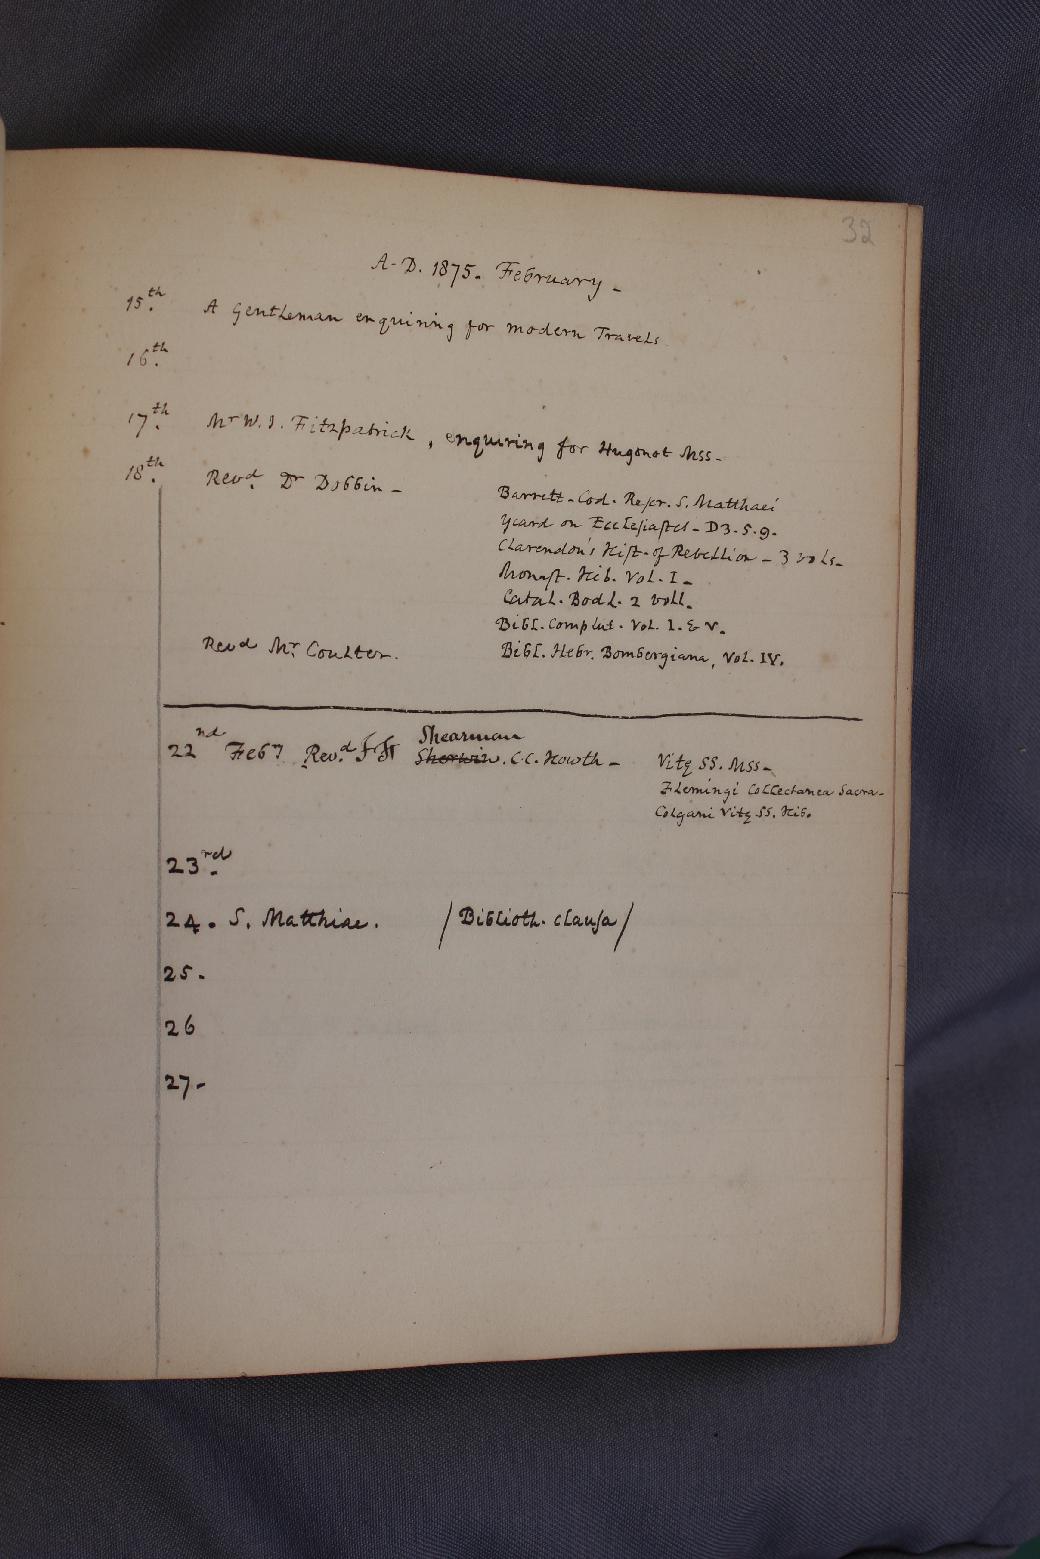 32
A.D. 1875. February -
15th. A Gentleman enquiring for modern Travels.
16th.
17th. Mr W. J. Fitzpatrick, enquiring for Hugonot Mss -
18th. Revd. Dr Dobbin - Barrett - Cod. Rescr. S. Matthaei
Yeard on Ecclesiastes - D3.5.9.
Clarendon's Hist. of Rebellion - 3 vols -
Monast. Hib. Vol. I -
Catal. Bodl. 2 voll.
Bibl. Complut. Vol. 1. & V.
Revd Mr. Coulter. Bibl. Hebr. Bombergiana, Vol. IV.
Shearman
22nd Feby Revd. Sherwin. C.C. Howth - Vitæ SS. Mss -
Flemingi Collectanea Sacra -
Colgani Vitæ SS. Hib.
23rd.
24. S. Matthiae. / Biblioth. clausa /
25.
26
27 -